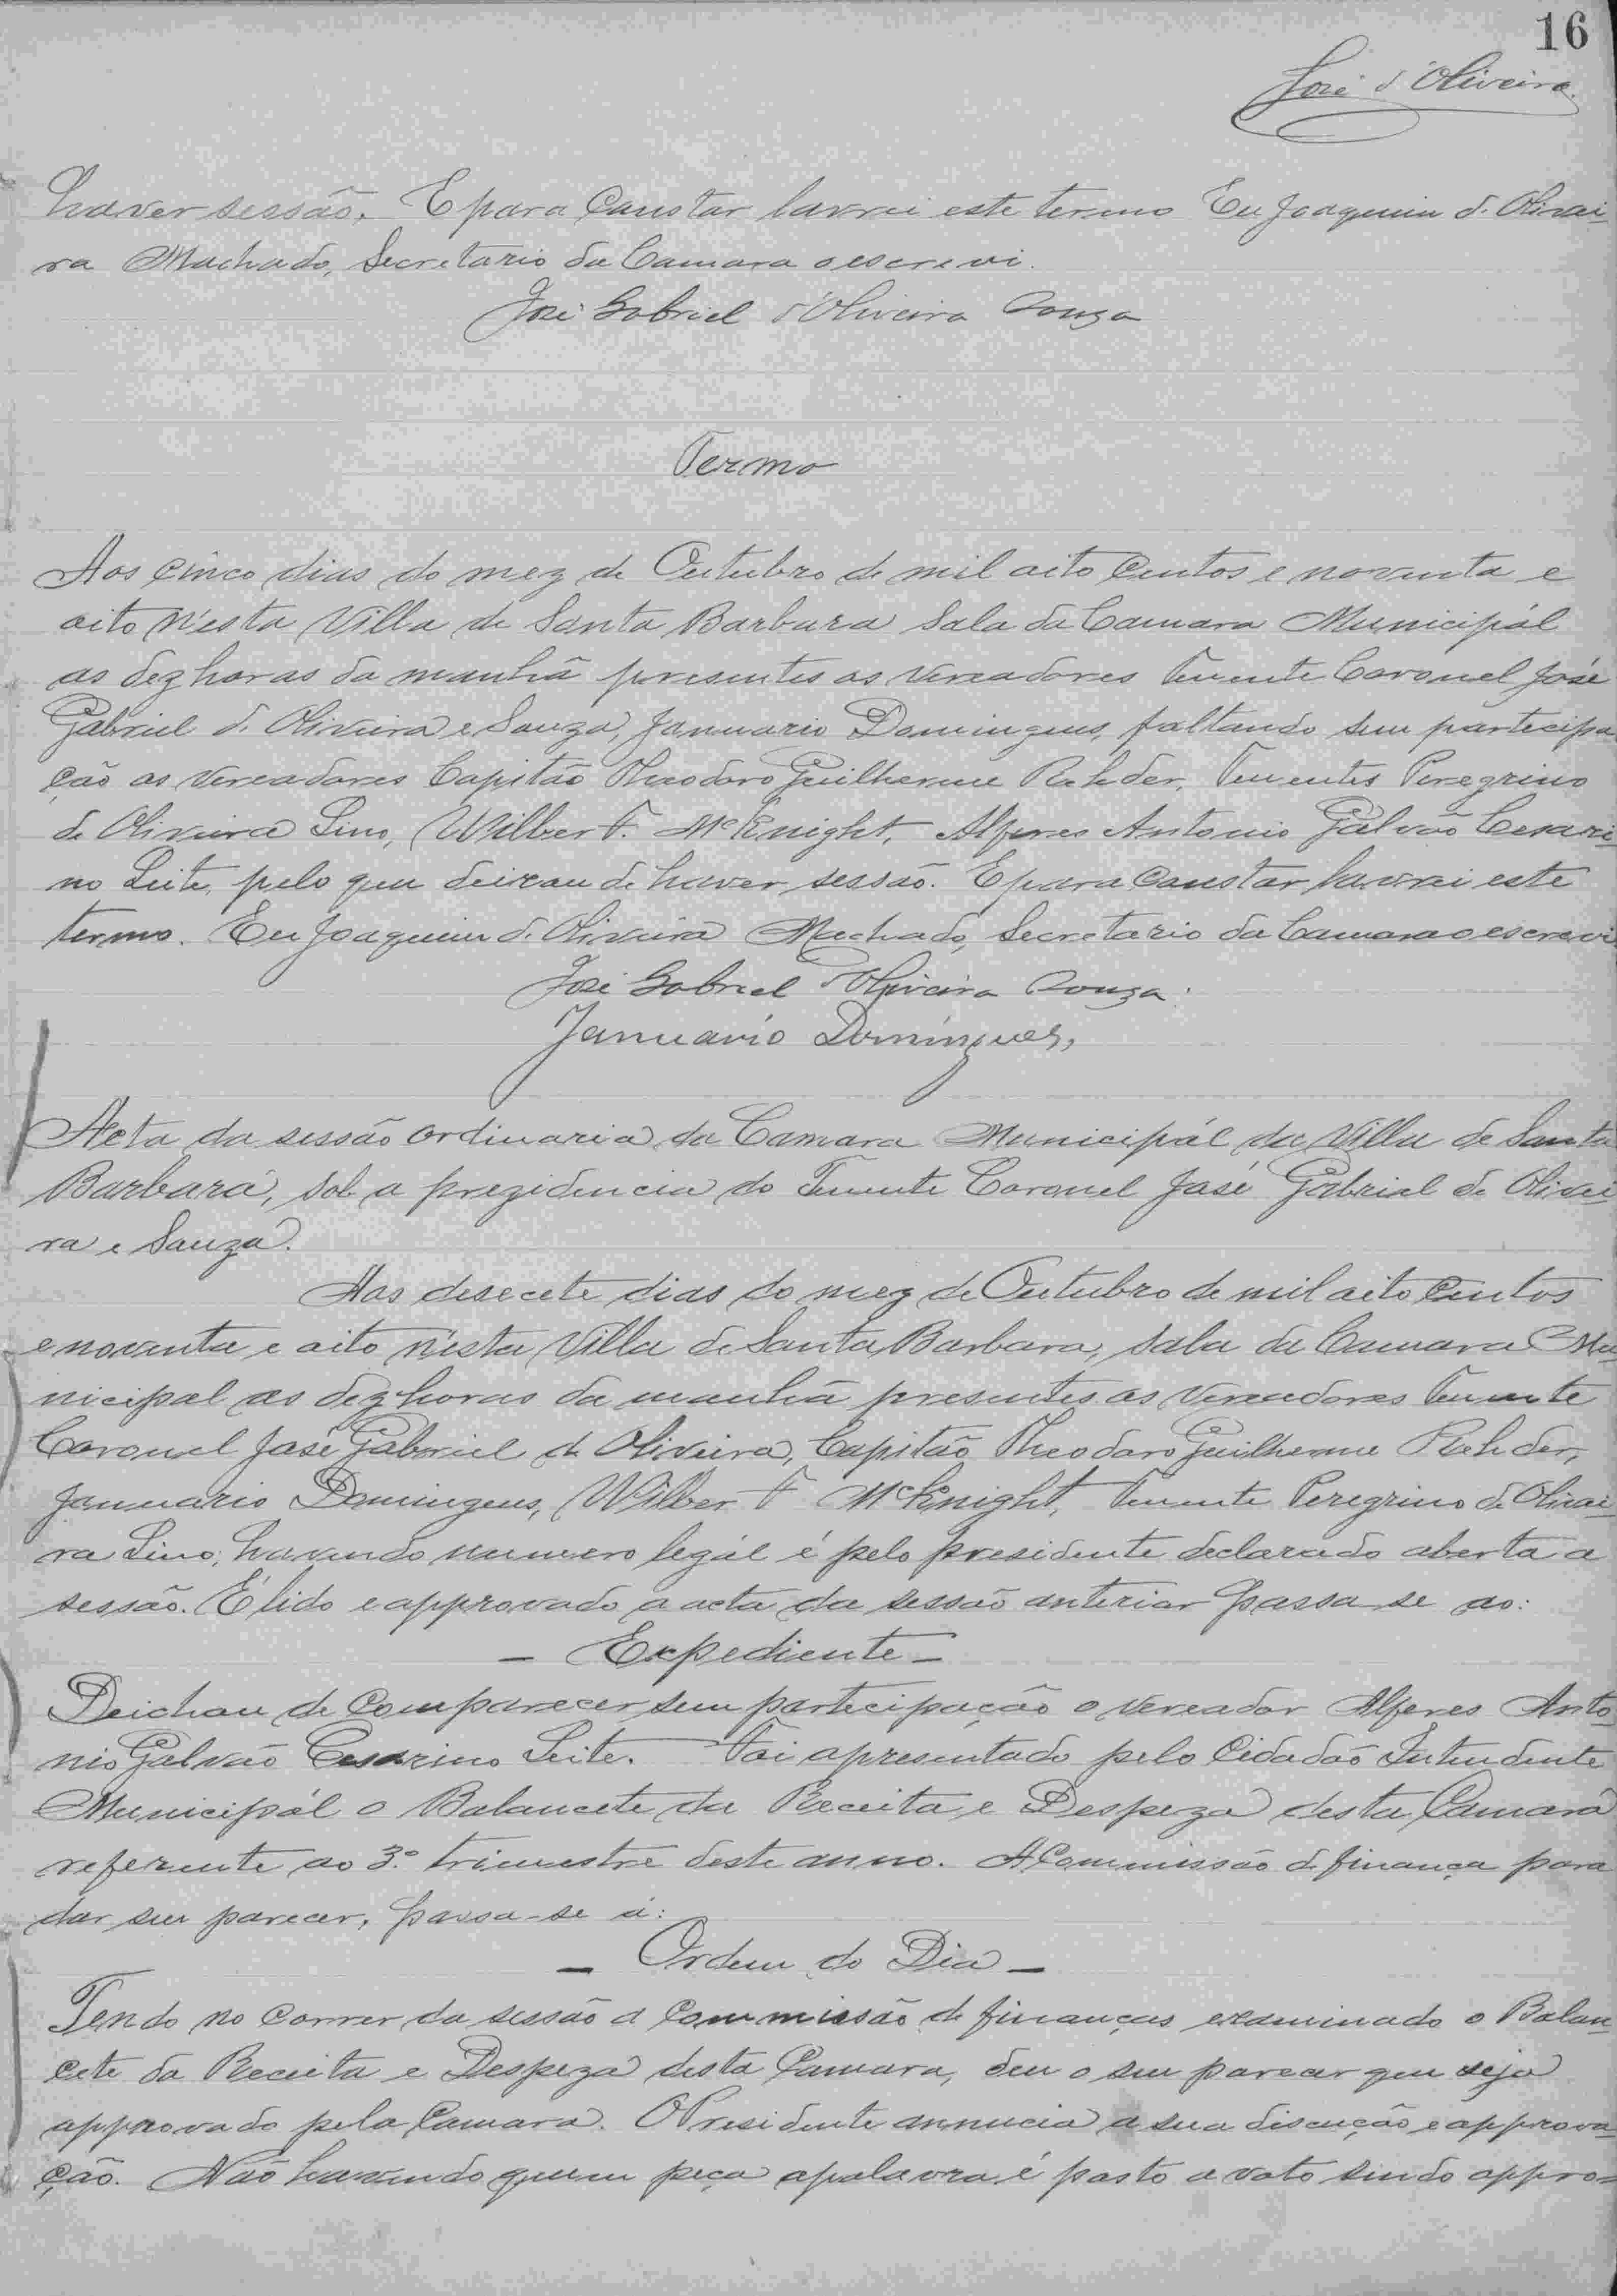 16
José d'Oliveira
haver sessão. E para constar lavrei este termo Eu Joaquim d. Olivei
ra Machado, Secretario da Camara o escrevi.
José Gabriel d'Oliveira Souza
Termo
Aos cinco dias do mez de Outubro de mil oito centos e noventa e
oito n'esta Villa de Santa Barbara Sala da Camara Municipál
as dez horas da manhã presentes os vereadores Tenente Coronel José
Gabriel d. Oliveira e Souza, Januario Domingues, faltando sem partecipa
ção os vereadores Capitão Theodoro Guilherme Rehder, Tenentes Peregrino
de Oliveira Lino, Wilber F. McKnight, Alferes Antonio Galvão Cesari
no Leite, pelo que deixou de haver sessão. E para constar lavrei este
termo. Eu Joaquim d. Oliveira Machado, Secretario da Camara o escrevi
José Gabriel d'Oliveira Souza.
Januario Domingues,
Acta da sessão ordinaria da Camara Municipál da Villa de Santa
Barbara, sob a prezidencia do Tenente Coronel José Gabriel de Olivei
ra e Souza.
Aos desecete dias do mez de Outubro de mil oito centos
e noventa e oito n'esta Villa de Santa Barbara, sala da Camara Mu
nicipal as dez horas da manhã presentes os vereadores Tenente
Coronel José Gabriel de Oliveira, Capitão Theodoro Guilherme Rehder,
Januario Domingues, Wilber F McKnight, Tenente Peregrino de Olivei
ra Lino, havendo numero legál é pelo presidente declarado aberta a
sessão. É lido e approvado a acta da sessão anterior passa-se ao:
- Expediente -
Deichou de comparecer sem partecipação o vereador Alferes Anto
nio Galvão Cesarino Leite. Foi apresentado pelo Cidadão Intendente
Municipál o Balancete da Receita e Despeza desta Camara
referente ao 3.º trimestre deste anno. A Commissão de finança para
dar seu parecer, passa-se á:
- Ordem do Dia -
Tendo no correr da sessão a Commissão de finanças examinado o Balan
cete da Receita e Despeza desta Camara, deu o seu parecer que seja
approvado pela Camara. O Presidente annucia a sua discução e approva
ção. Não havendo quem peça a palavra é posto a voto sendo appro-